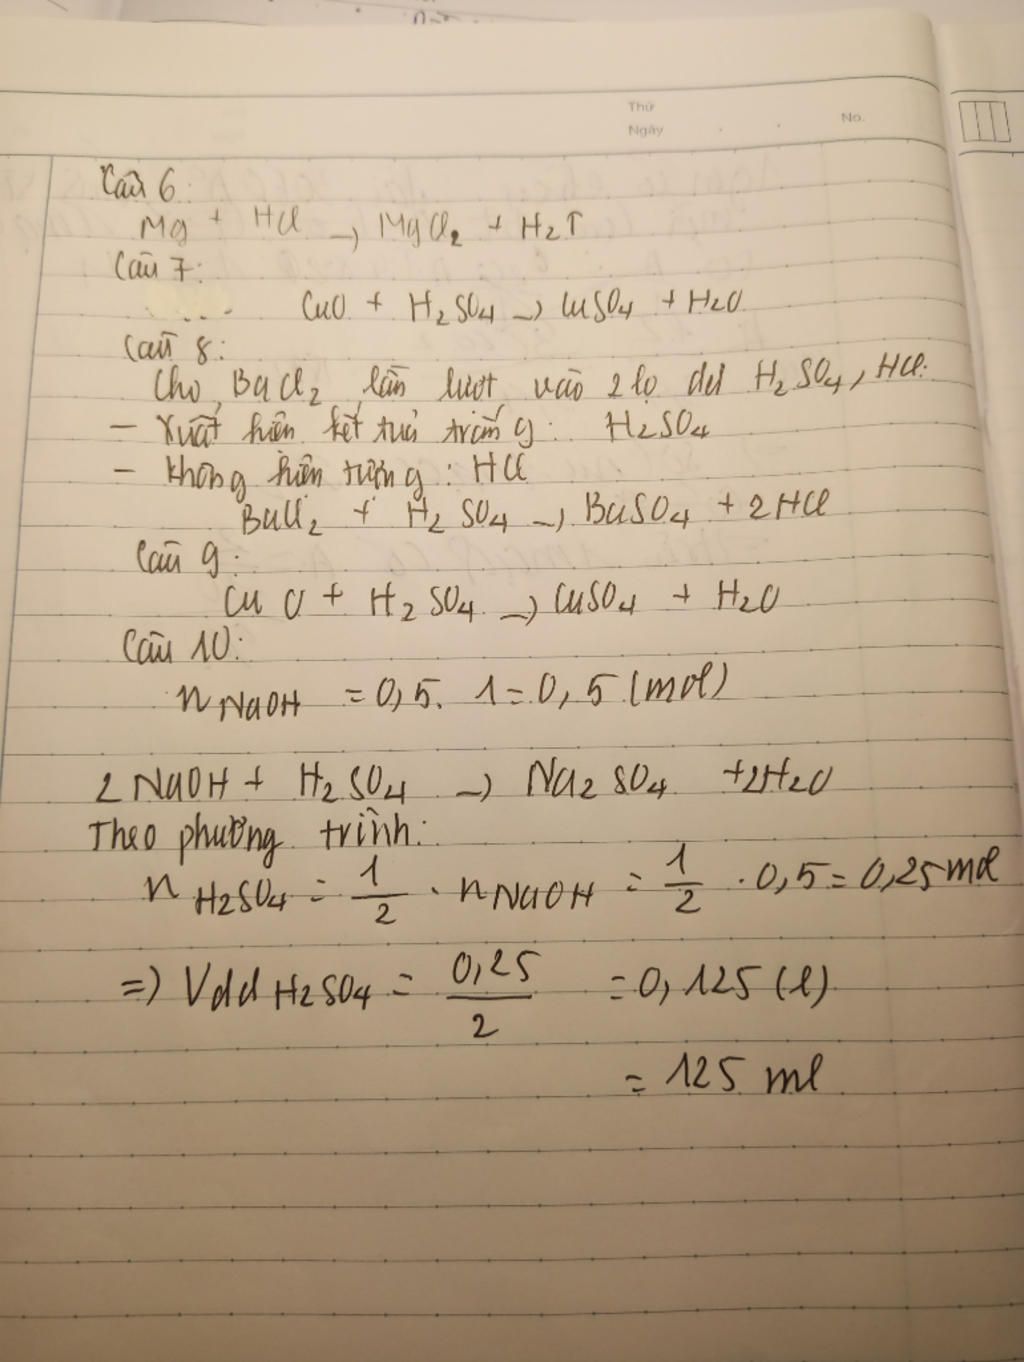 Thứ
Ngày
No.
Câu 6:
Mg + HCl → MgCl₂ + H₂↑
Câu 7:
CuO + H₂SO₄ → CuSO₄ + H₂O
Câu 8:
Cho BaCl₂ lần lượt vào 2 lọ dd H₂SO₄, HCl:
- Xuất hiện kết tủa trắng: H₂SO₄
- không hiện tượng: HCl
BaCl₂ + H₂SO₄ → BaSO₄ + 2HCl
Câu 9:
CuO + H₂SO₄ → CuSO₄ + H₂O
Câu 10:
n NaOH = 0,5. 1 = 0,5 (mol)
2NaOH + H₂SO₄ → Na₂SO₄ + 2H₂O
Theo phương trình:
n H₂SO₄ = 1/2 . n NaOH = 1/2 . 0,5 = 0,25 mol
=> Vdd H₂SO₄ = 0,25/2 = 0,125 (l)
= 125 ml